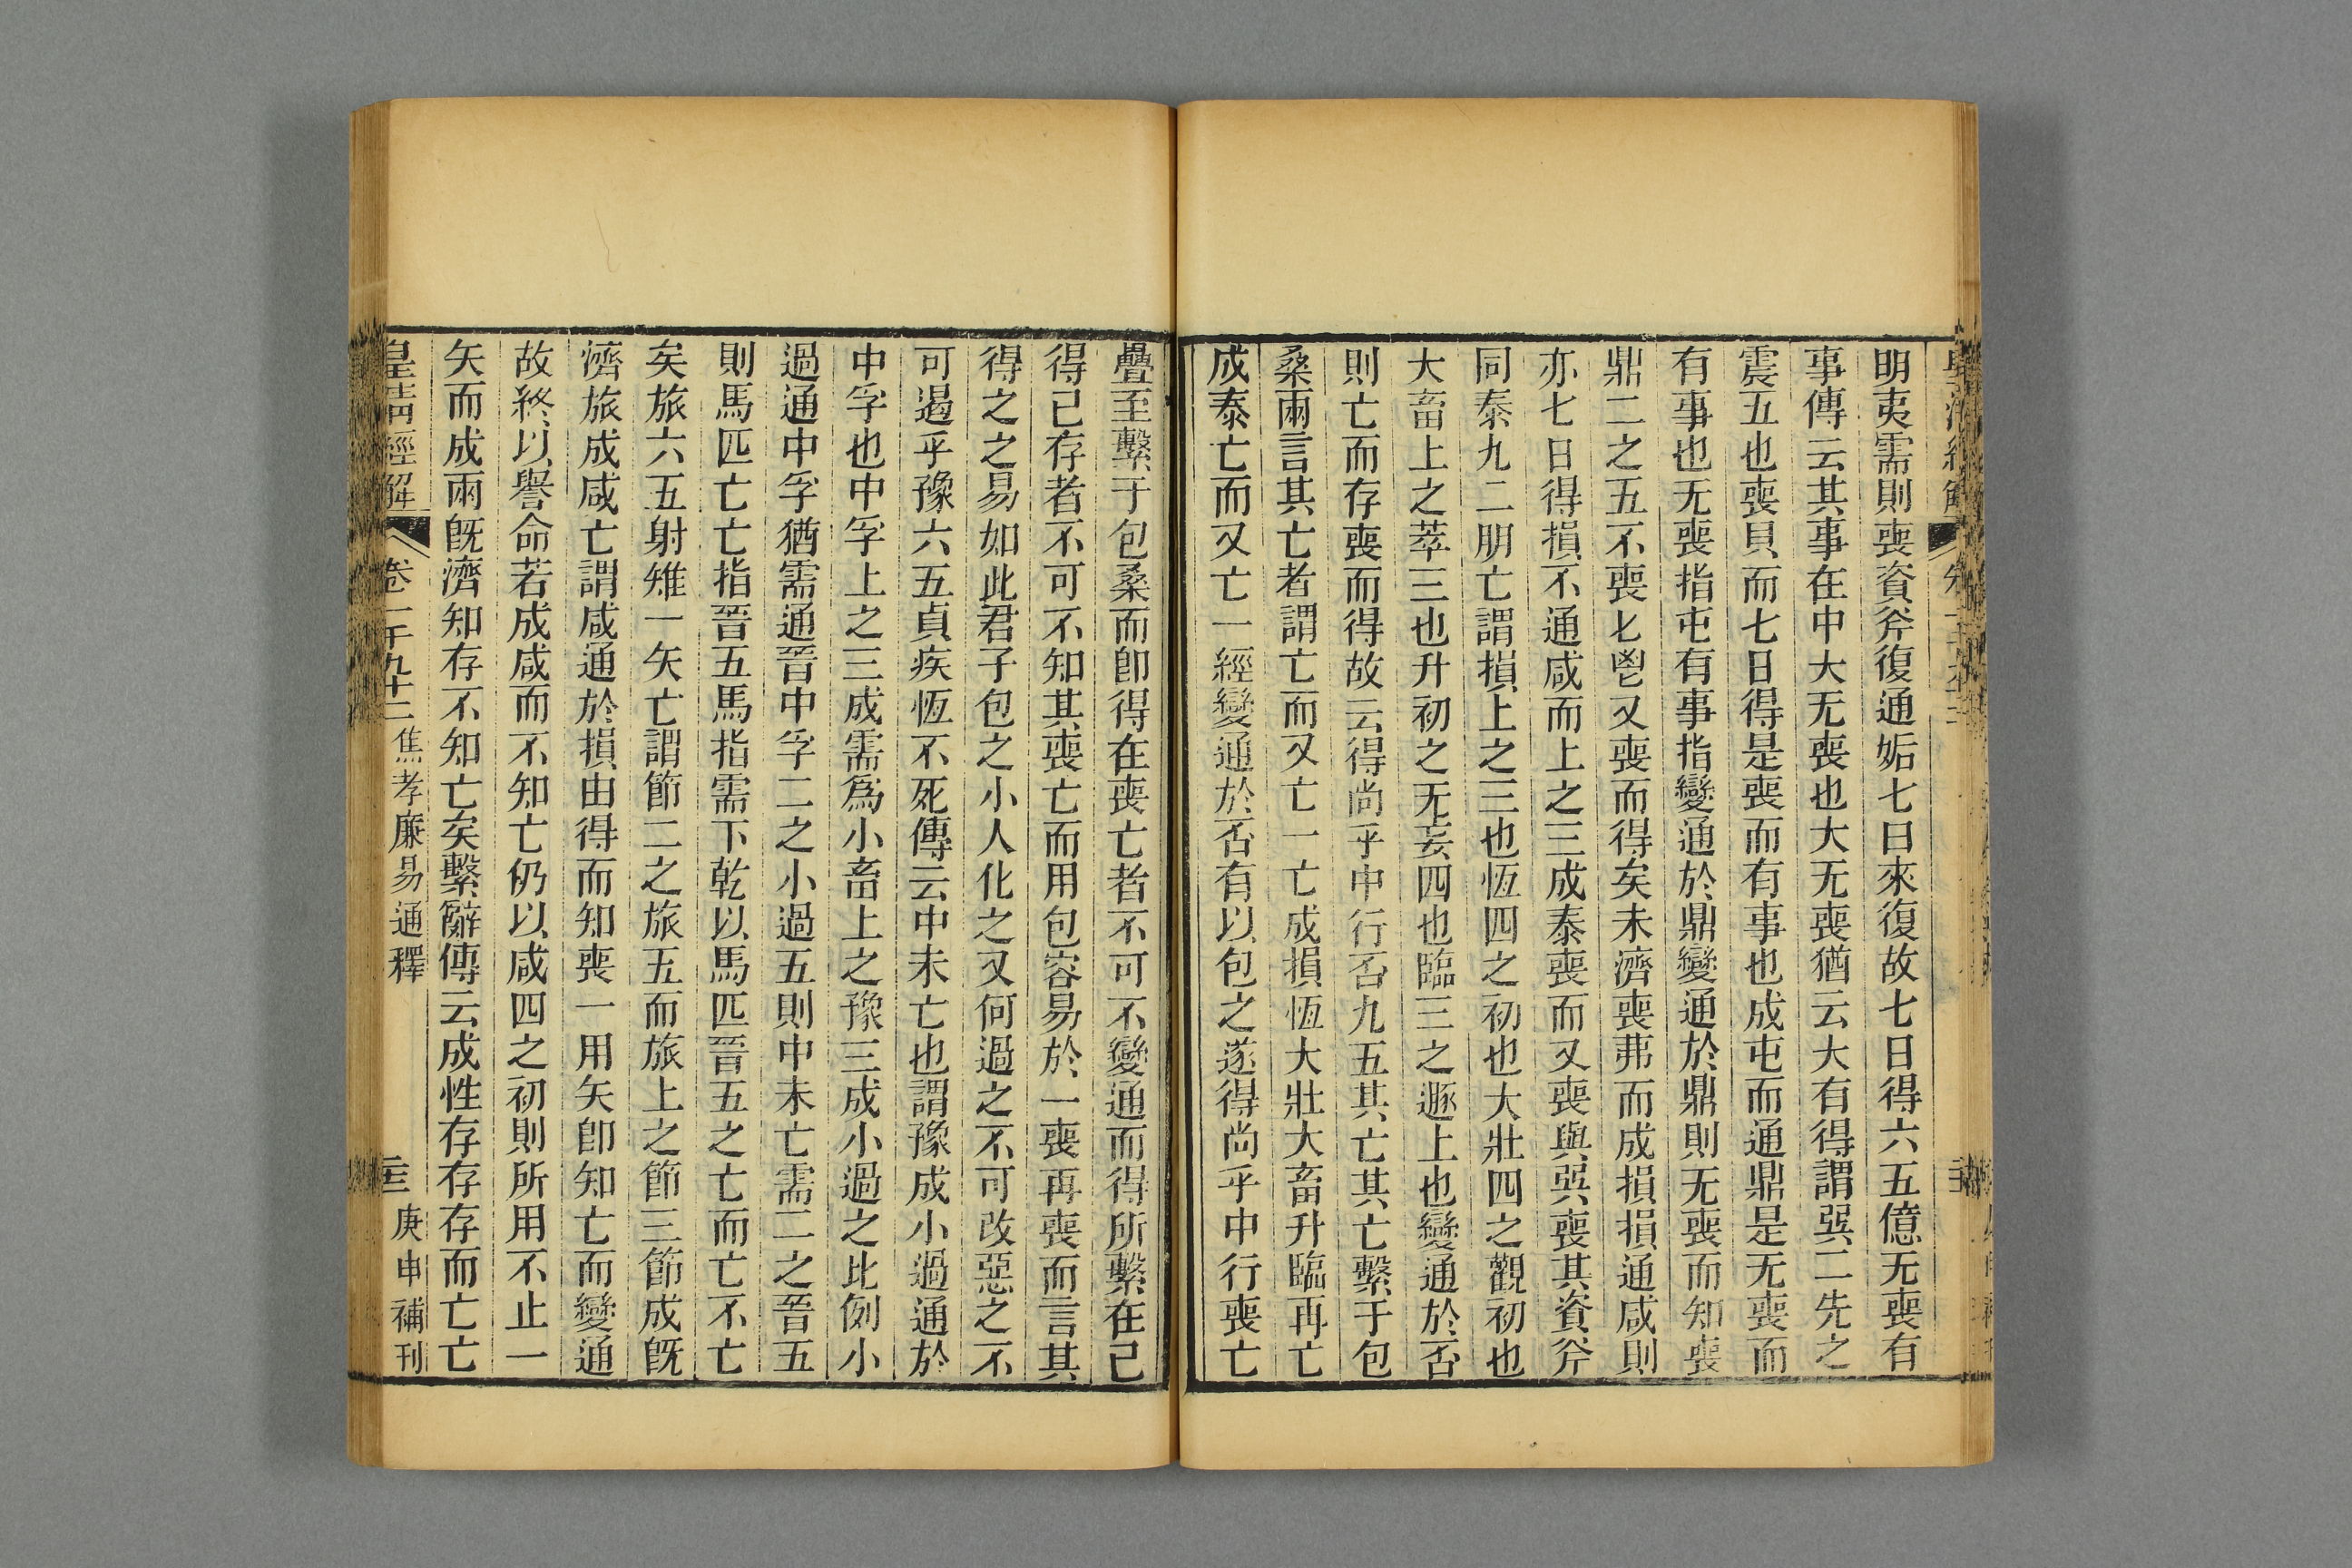 明夷需則喪資斧復通姤七日來復故七日得六五億无喪有
事傳云其事在中大无喪也大无喪猶云大有得謂巽二先之
震五也喪貝而七日得是喪而有事也成屯而通鼎是无喪而
有事也无喪指屯有事指變通於鼎變通於鼎則无喪而知喪
鼎二之五不喪匕鬯又喪而得矣未濟喪茀而成損損通咸則
亦七日得損不通咸而上之三成泰喪而又喪與巽喪其資斧
同泰九二朋亡謂損上之三也恆四之初也大壯四之觀初也
大畜上之萃三也升初之无妄四也臨三之遯上也變通於否
則亡而存喪而得故云得尚乎中行否九五其亡其亡繫于包
桑兩言其亡者謂亡而又亡一亡成損恆大壯大畜升臨再亡
成泰亡而又亡一經變通於否有以包之遂得尚乎中行喪亡
疊至繫于包桑而卽得在喪亡者不可不變通而得所繫在己
得已存者不可不知其喪亡而用包容易於一喪再喪而言其
得之之易如此君子包之小人化之又何過之不可改惡之不
可遏乎豫六五貞疾恆不死傳云中未亡也謂豫成小過通於
中孚也中孚上之三成需爲小畜上之豫三成小過之比例小
過通中孚猶需通晉中孚二之小過五則中未亡需二之晉五
則馬匹亡亡指晉五馬指需下乾以馬匹晉五之亡而亡不亡
矣旅六五射雉一矢亡謂節二之旅五而旅上之節三節成旣
濟旅成咸亡謂咸通於損由得而知喪一用矢卽知亡而變通
故終以譽命若成咸而不知亡仍以咸四之初則所用不止一
矢而成兩旣濟知存不知亡矣繫辭傳云成性存存存而亡亡
皇清經解 卷一千九十二 焦孝廉易通釋 三 庚申補刊